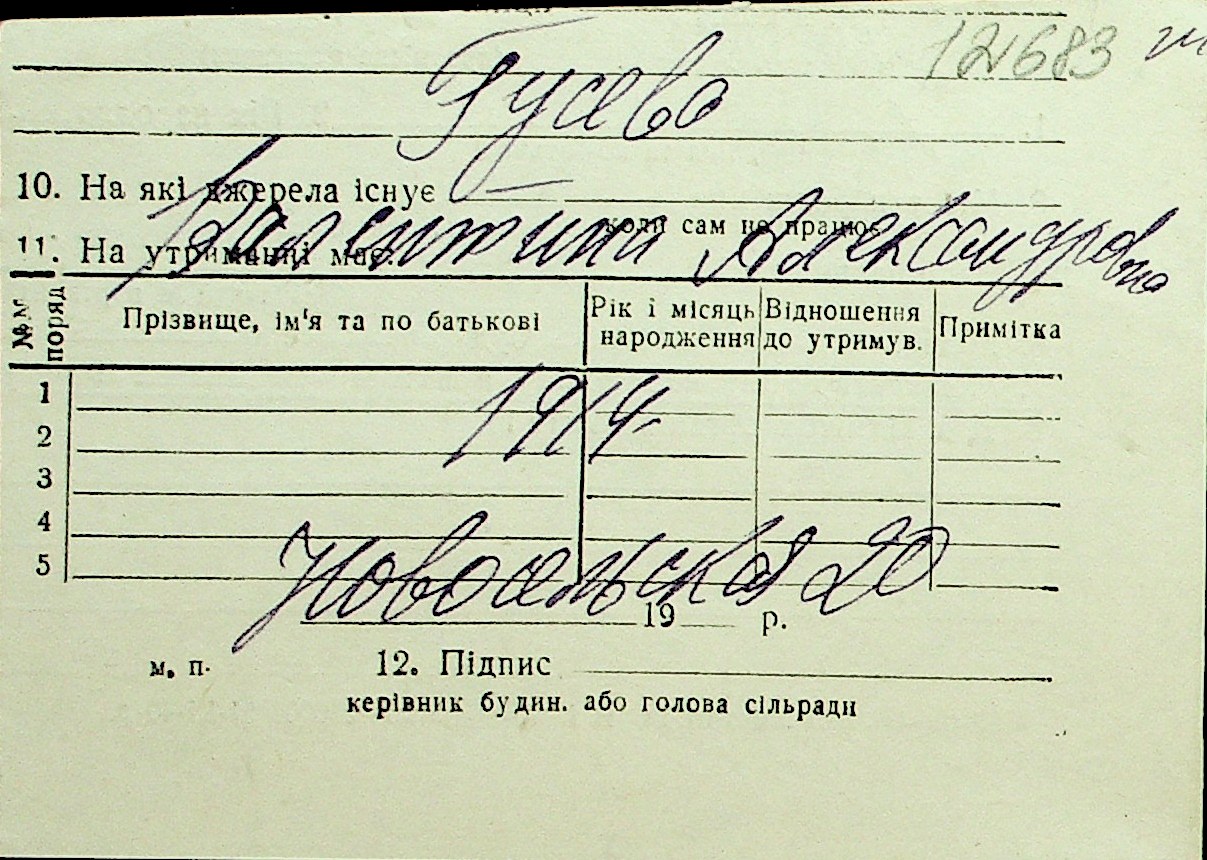 12683
Гусева
10. На які джерела існує
коли сам не працює
Валентина Александровна
11. На утриманні має:
№№ поряд
Прізвище, ім'я та по батькові
Рік і місяць народження
Відношення до утримув.
Примітка
1
1914
2
3
4
5
Новосельская 20
19 р.
м. п.
12. Підпис
керівник будин. або голова сільради